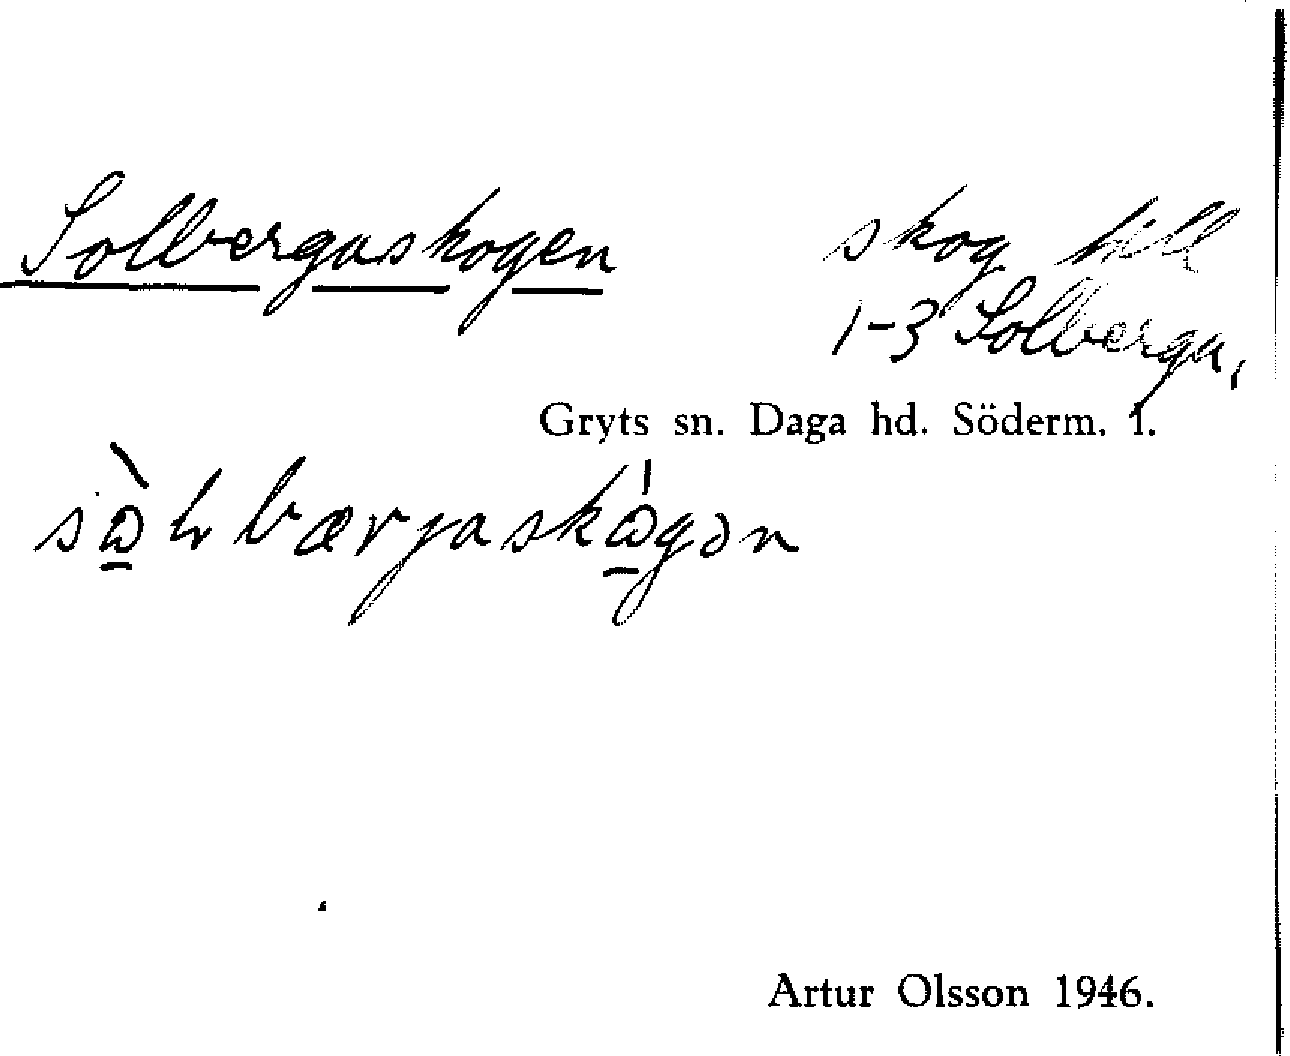 Solbergaskogen skog till
1-3 Solberga,
Gryts sn. Daga hd. Söderm. l.
Artur Olsson 1946.